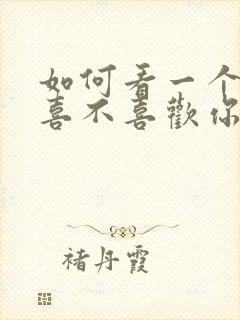 如何看一个
喜不喜歡你
褚丹霞